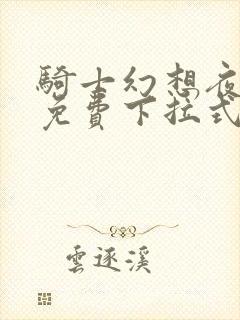 騎士幻想夜
免費下拉式
雲逐溪